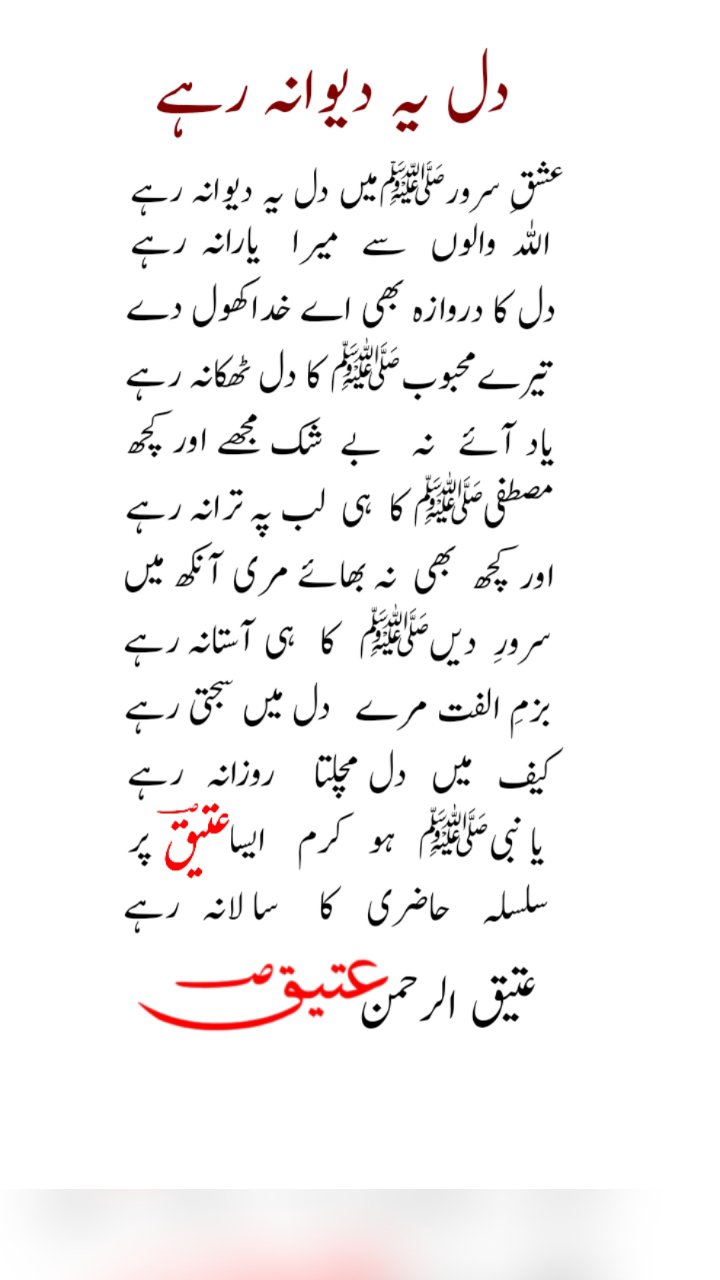 دل یہ دیوانہ رہے
عشقِ سرورﷺمیں دل یہ دیوانہ رہے
اللہ والوں سے میرا یارانہ رہے
دل کا دروازہ بھی اے خدا کھول دے
تیرے محبوبﷺ کا دل ٹھکانہ رہے
یاد آئے نہ بے شک مجھے اور کچھ
مصطفیﷺ کا ہی لب پہ ترانہ رہے
اور کچھ بھی نہ بھائے مری آنکھ میں
سرورِ دیںﷺ کا ہی آستانہ رہے
بزمِ الفت مرے دل میں سجتی رہے
کیف میں دل مچلتا روزانہ رہے
یا نبیﷺ ہو کرم ایسا عتیقؔ پر
سلسلہ حاضری کا سالانہ رہے
عتیق الرحمن عتیقؔ